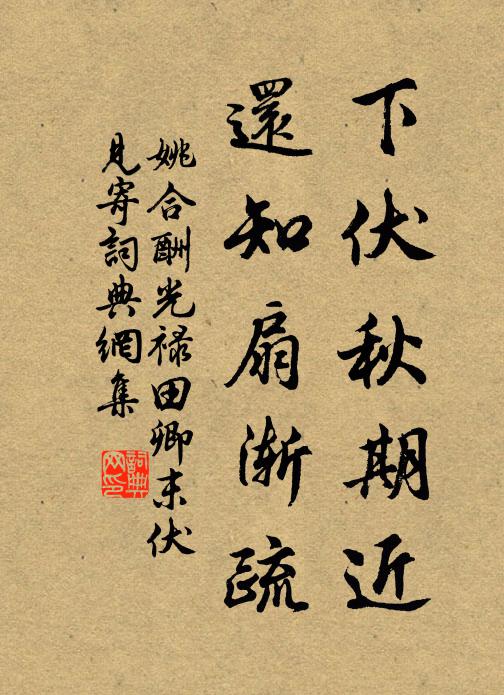 下伏秋期近
還知扇漸疏
姚合酬光祿田卿末伏
見寄詞典網集
詞典
网印